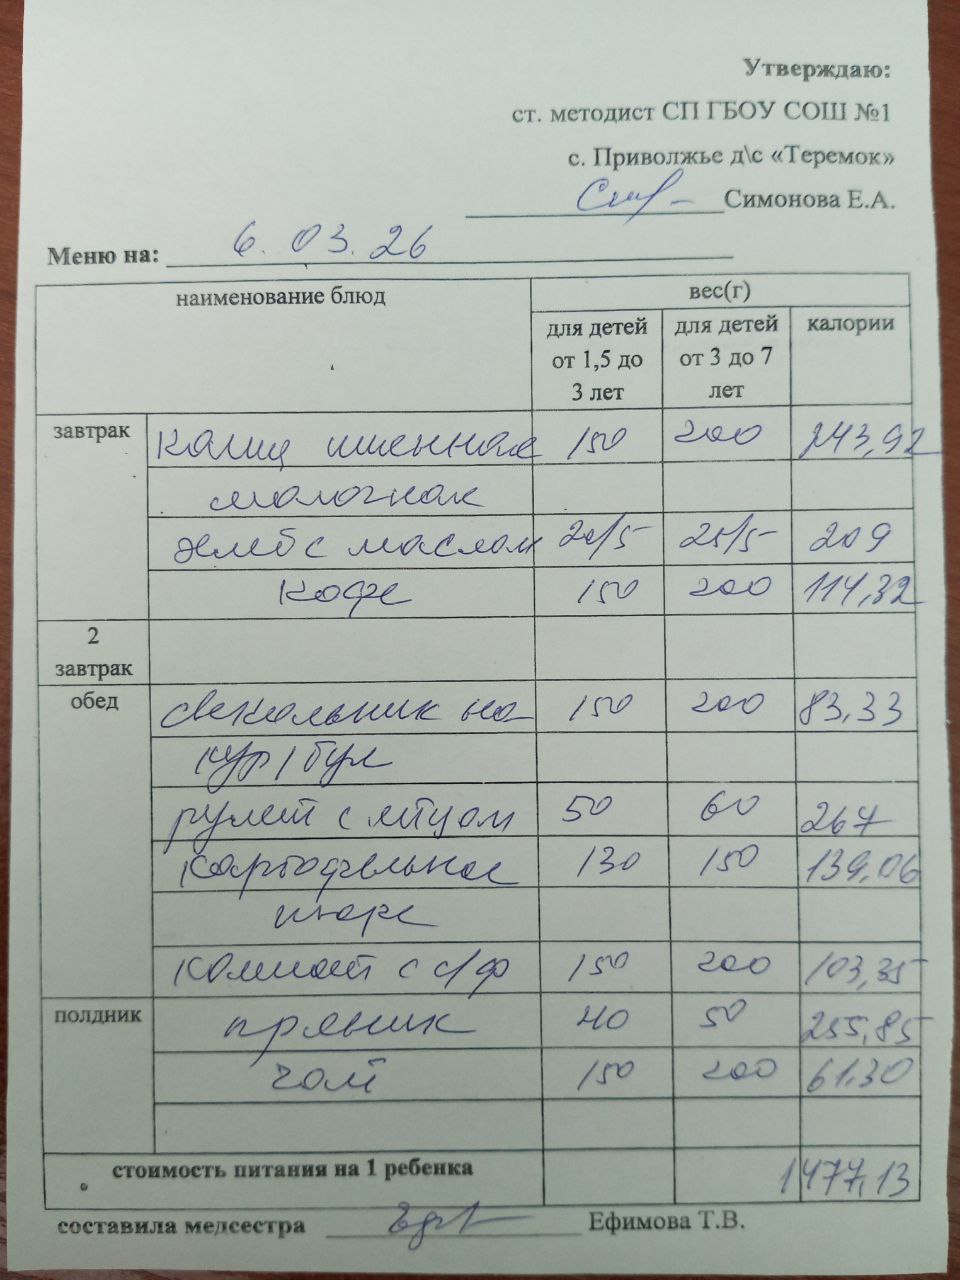 Утверждаю:
ст. методист СП ГБОУ СОШ №1
с. Приволжье д\с «Теремок»
Симонова Е.А.
Меню на: 6.03.26
наименование блюд вес(г)
для детей от 1,5 до 3 лет для детей от 3 до 7 лет калории
завтрак каша пшенная 150 200 243,92
молочная
хлеб с маслом 20/5 25/5 209
кофе 150 200 114,32
2 завтрак
обед свекольник на 150 200 83,33
кур/бул
рулет с яйцом 50 60 267
картофельное 130 150 139,06
пюре
компот с с/ф 150 200 103,35
полдник пряник 40 50 255,85
чай 150 200 61.30
стоимость питания на 1 ребенка 1477,13
составила медсестра Ефимова Т.В.